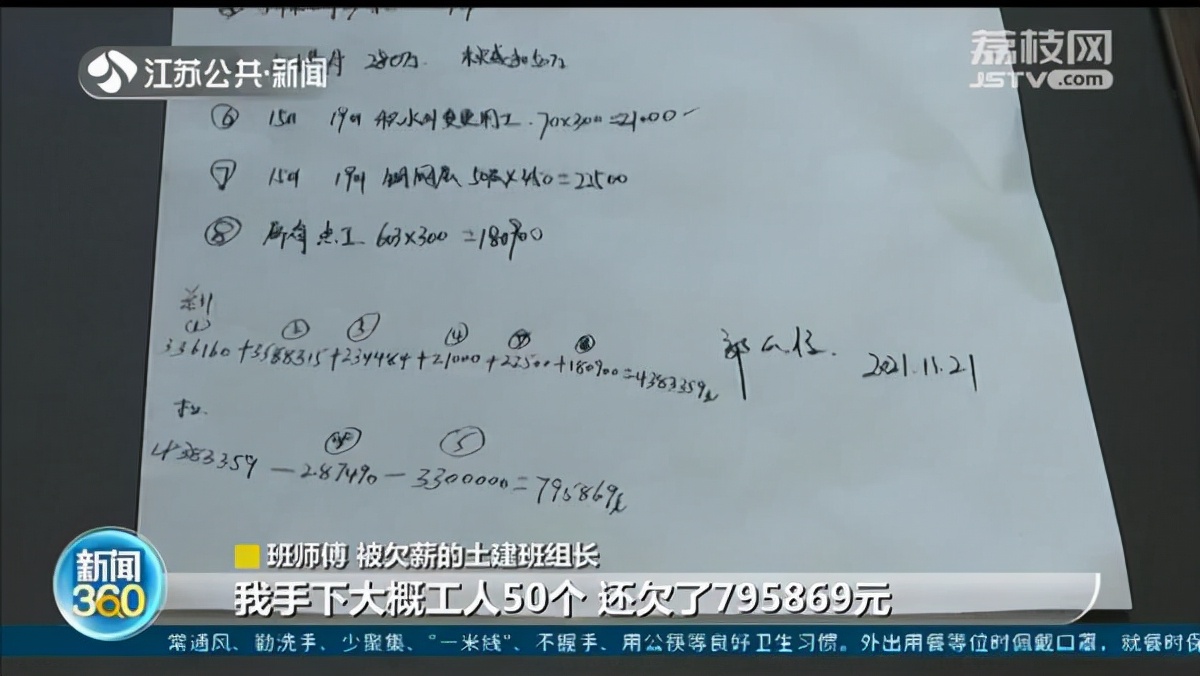 荔枝网
JSTV.com
江苏公共·新闻
280万.
⑥ 15# 19# 积水对变更用工. 70×300=21000
⑦ 15# 19# 钢网 50×450=22500
⑧ 所有点工 603×300=180900
336160+3588315+234484+21000+22500+180900=4383359元
2021.11.21
4383359-287490-3300000=795869元
新闻
360
班师傅 被欠薪的土建班组长
我手下大概工人50个 还欠了795869元
常通风、勤洗手、少聚集、“一米线”、不握手、用公筷等良好卫生习惯。外出用餐等位时佩戴口罩，就餐时保